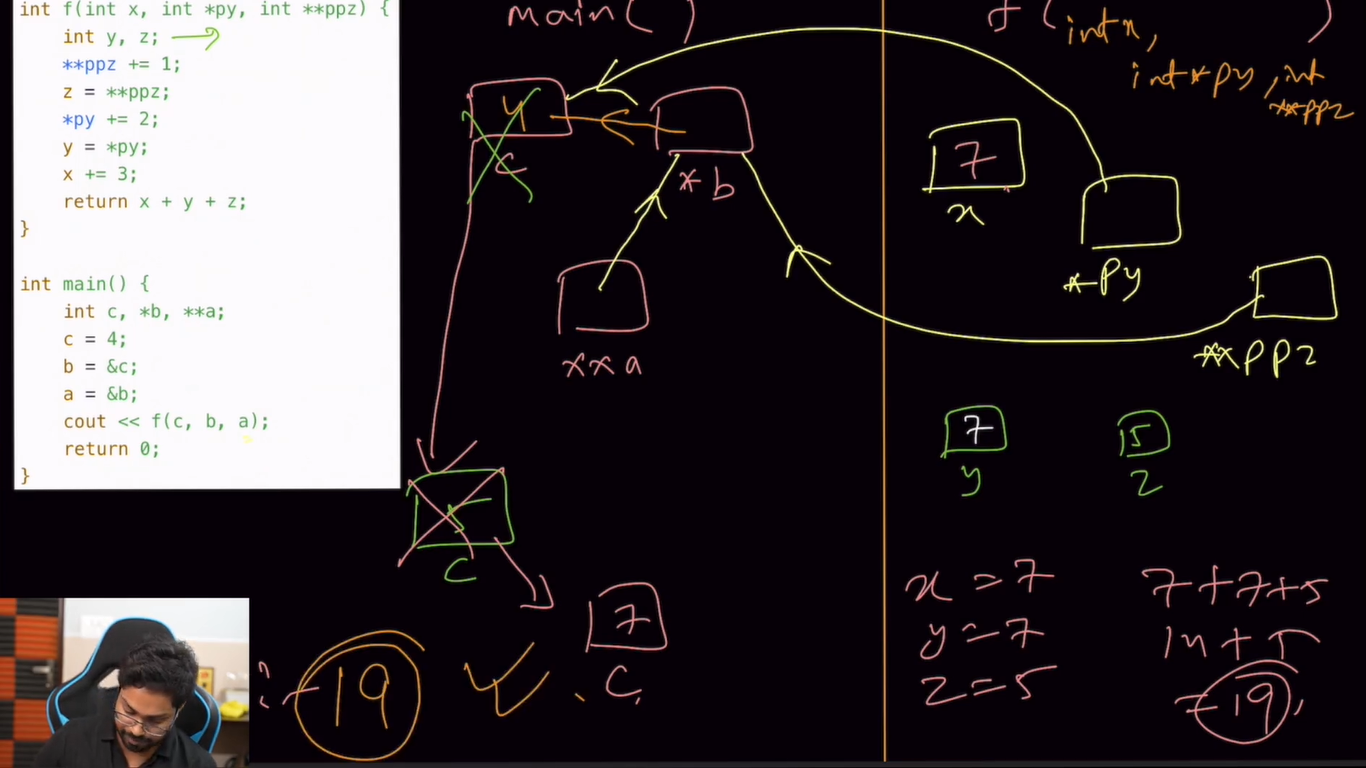 int f(int x, int *py, int **ppz) {
int y, z;
**ppz += 1;
z = **ppz;
*py += 2;
y = *py;
x += 3;
return x + y + z;
}
int main() {
int c, *b, **a;
c = 4;
b = &c;
a = &b;
cout << f(c, b, a);
return 0;
}
main( )
4
c
*b
**a
5
c
7
c
19
f(int x, )
int *py, int
**ppz
7
x
*py
**ppz
7
y
5
z
x = 7
y = 7
z = 5
7 + 7 + 5
14 + 5
= 19